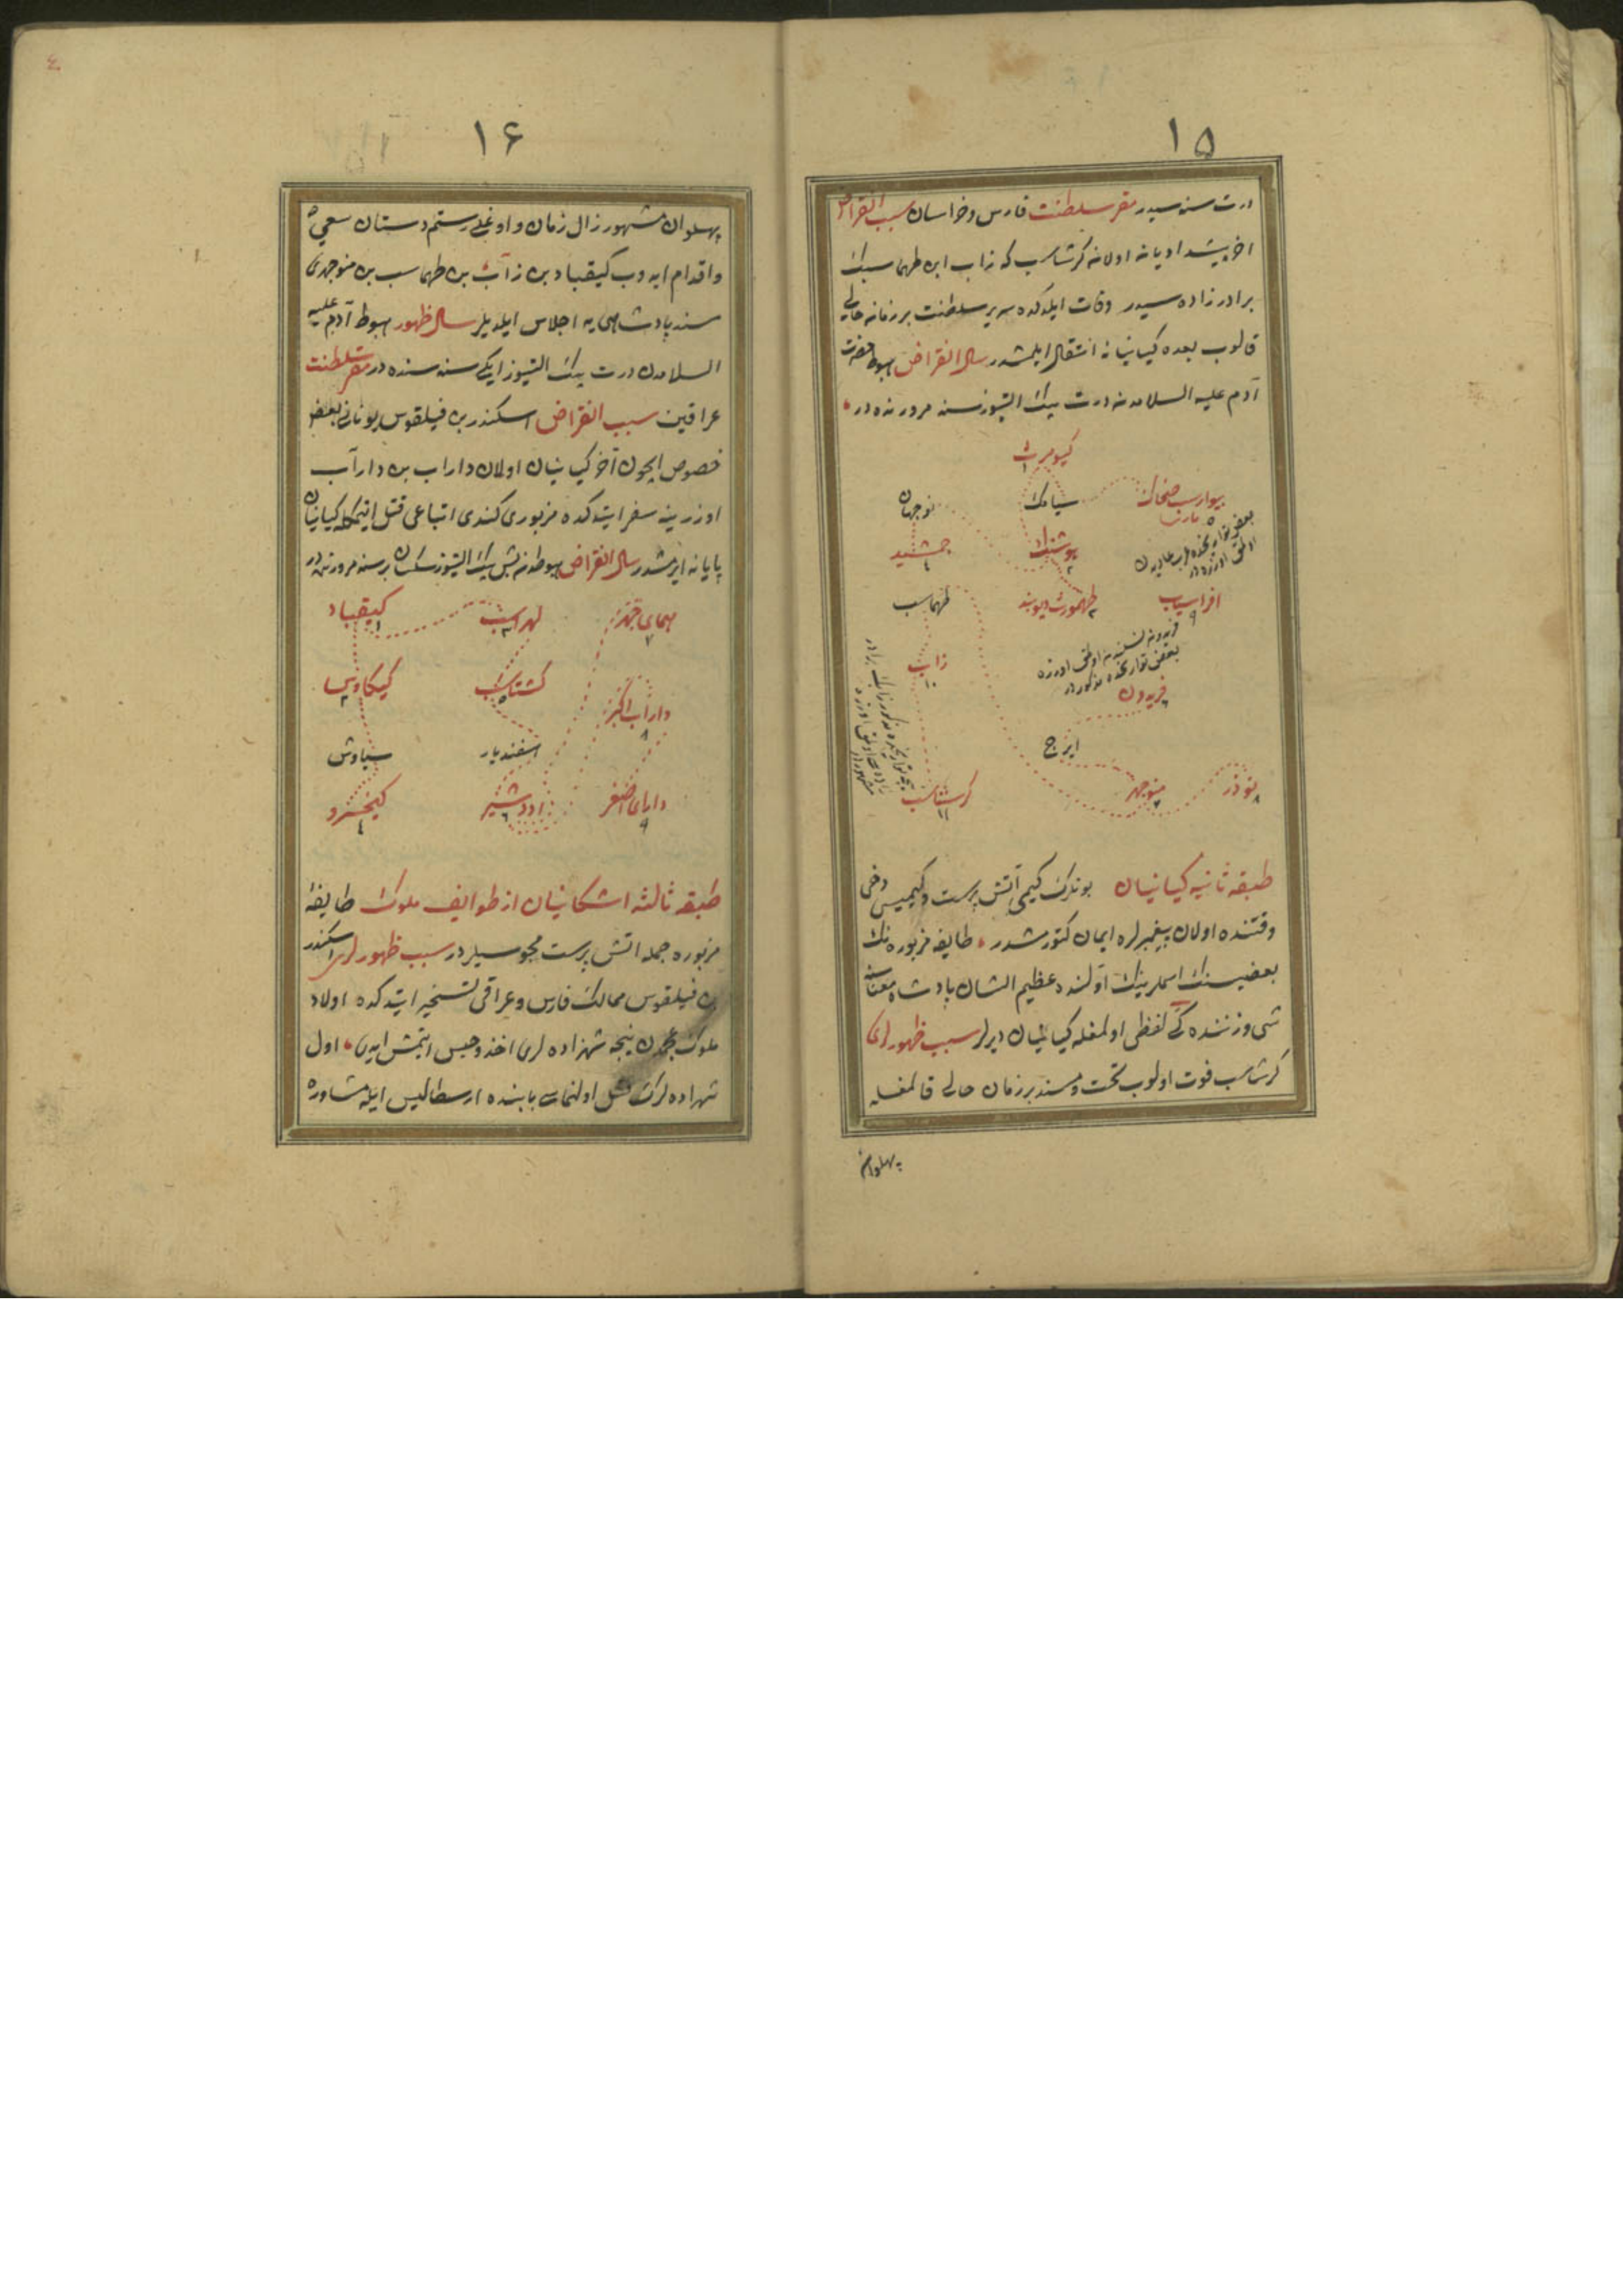 ١٥
درت سنه سیدر مقر سلطنت فارس و خراسان سبب انقراض
اخر پیشدادیانه اولانه کرشاسب که زاب ابن طهماسبك
برادر زاده سیدر وفات ایلدکده سریر سلطنت بر زمانه خالی
قالوب بعده کیانیانه انتقال ایلمشدر سال انقراض هبوط حضرت
آدم علیه السلامدنه درت بیك التیوز سنه مرورنده در
کیومرث
١
بیوارسب ضحاك
٥
سیامك
نوجهان
بعض تواریخده
هوشنك
٢
جمشید
٤
افراسیاب
٩
طهمورث دیوبند
٣
طهماسب
بعض تواریخده مذکوردر
زاب
١٠
فریدون
٦
ایرج
نوذر
٨
منوچهر
٧
کرشاسب
١١
طبقه ثانیه کیانیان بونلرك کیمی آتش پرست و کیمیسی دخی
وقتنده اولان پیغمبرلره ایمان کتورمشدر طایفه مزبوره نك
بعضیسنك اسملرینك اولنده عظیم الشان پادشاه معناسنه
شی وزننده کی لفظی اولمغله کیانیان دیرلر سبب ظهورلری
کرشاسب فوت اولوب تخت و مسند بر زمان خالی قالمغله
پهلوان
١٦
پهلوان مشهور زال زمان و اوغلی رستم دستان سعی
و اقدام ایدوب کیقباد بن زاب بن طهماسب بن منوچهری
مسند پادشاهی یه اجلاس ایلدیلر سال ظهور هبوط آدم علیه
السلامدن درت بیك التیوز ایکی سنه سنده در مقر سلطنت
عراقین سبب انقراض اسکندر بن فیلقوس یونانی بعض
خصوص ایچون آخر کیانیان اولان داراب بن داراب
اوزرینه سفر ایتدکده مزبوری کندی اتباعی قتل ایتمکله کیانیان
پایانه ایرمشدر سال انقراض هبوطدنه بش بیك التیوز بر سنه مرورنده در
کیقباد
١
لهراسب
٣
همای
٧
کیکاوس
٢
کشتاسب
٥
داراب اکبر
٨
سیاوش
اسفندیار
کیخسرو
٤
اردشیر
٦
دارای اصغر
٩
طبقه ثالثه اشکانیان از طوایف ملوك طایفه
مزبوره جمله اتش پرست مجوسیلردر سبب ظهورلری اسکندر
بن فیلقوس ممالك فارس و عراقی تسخیر ایتدکده اولاد
ملوك عجمدن نیجه شهزاده لری اخذ و حبس ایتمش ایدی اول
شهزاده لرك قتل اولنماسی بابنده ارسطالیس ایله مشاوره